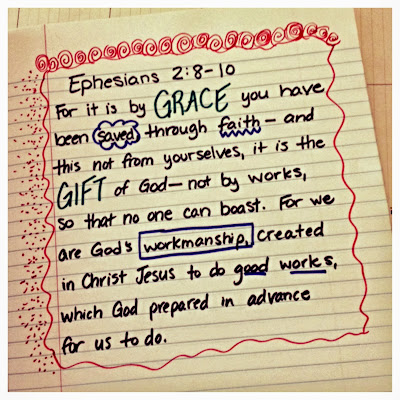 Ephesians 2:8-10
For it is by GRACE you have
been saved through faith — and
this not from yourselves, it is the
GIFT of God — not by works,
so that no one can boast. For we
are God's workmanship, created
in Christ Jesus to do good works,
which God prepared in advance
for us to do.